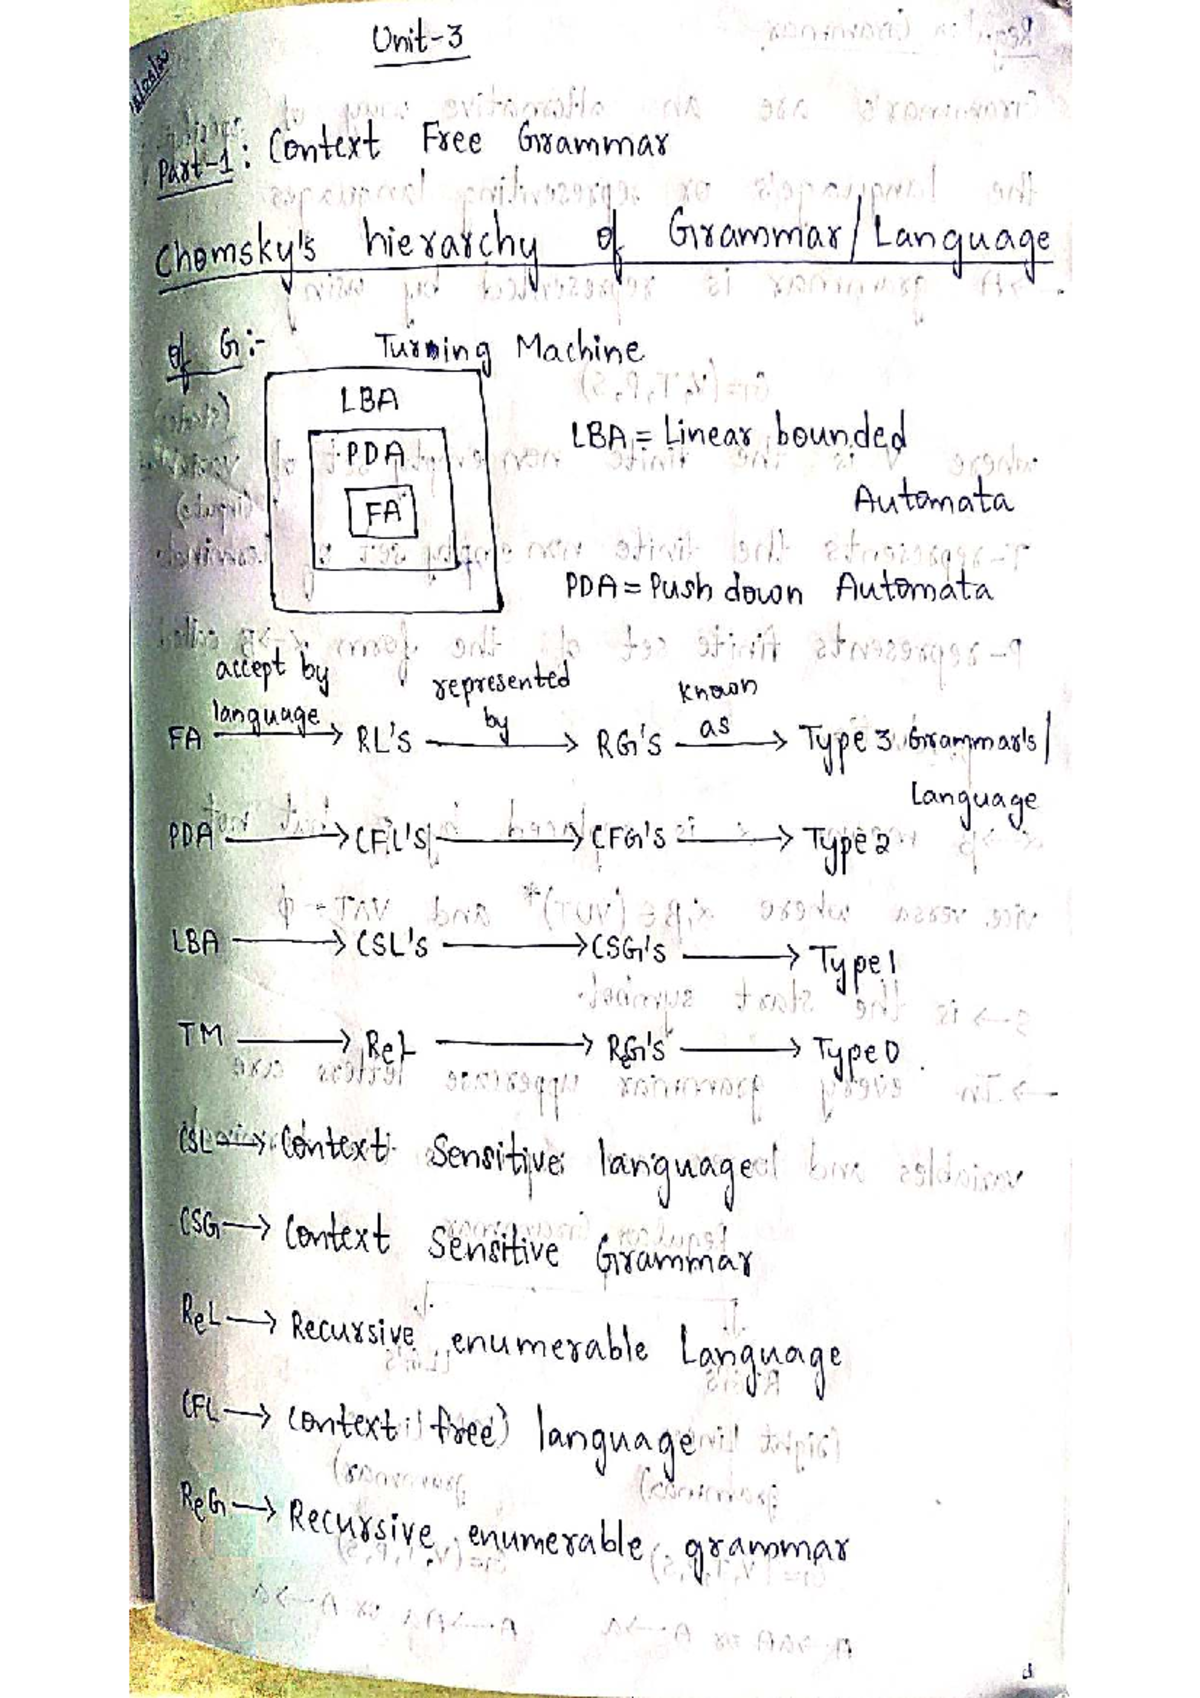 Unit-3
Part-1: Context Free Grammar
Chomsky's hierarchy of Grammar/Language
of G:- Turning Machine
LBA
PDA
FA
LBA = Linear bounded
Automata
PDA = Push down Automata
FA accept by language → RL's represented by → RG's known as → Type 3 Grammar's/
Language
PDA → CFL's → CFG's → Type 2
LBA → CSL's → CSG's → Type 1
TM → ReL → ReG's → Type 0.
CSL → Context Sensitive language
CSG → Context Sensitive Grammar
ReL → Recursive enumerable Language
CFL → Context free language
ReG → Recursive enumerable grammar